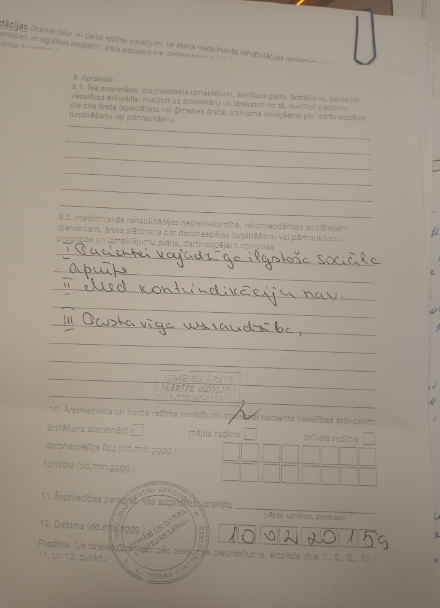 dācijas
9. Apraksts:
9.1. īsa anamnēze, diagnostiskie izmeklējumi, slimības gaita, ārstēšana, pacienta
veselības stāvoklis, nosūtot uz stacionāru un izrakstot no tā, nosūtot pacientu
pie cita ārsta (speciālista vai ģimenes ārsta) atzinuma sniegšanai par darbnespējas
turpināšanu vai pārtraukšanu
9.2. medicīniskās rehabilitācijas nepieciešamība, rekomendācijas sociālajiem
dienestiem, ārsta slēdziens par darbnespējas turpināšanu vai pārtraukšanu,
prognoze un izmeklējumu plāns, darbnespējai turpinoties
I Pacientei vajadzīga ilgstoša sociāla
aprūpe
II Med kontrindikāciju nav.
III Pastāvīga uzraudzība.
ĢIMENES ĀRSTE
MĀRĪTE OZOLIŅA
10. Ārstnieciskie un darba režīma norādījumi pacienta veselības stāvoklim:
ārstēšana stacionārā mājas režīms brīvais režīms
darbnespējīgs līdz (dd.mm.gggg.)
kontrole (dd.mm.gggg.)
11. Ārstniecības persona, kas aizpildījusi izrakstu
(vārds, uzvārds, paraksts)
12. Datums (dd.mm.gggg.)
pēc personas pieprasījuma, aizpilda tikai 1., 2., 3., 10.,
11. un 12. punktu.